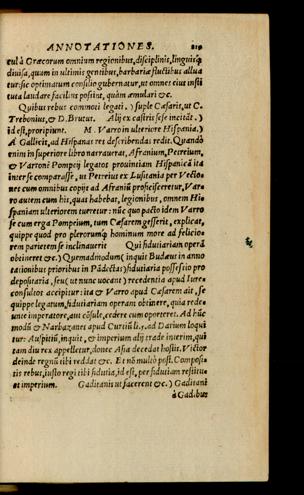 ANNOTATIONES. 219
cul à Græcorum omnium regionibus, disciplinis, linguisq́;
diuisa, quam in ultimis gentibus, barbariæ fluctibus allua
tur: sic optimatum consilio gubernatur, ut omnes eius insti
tuta laudare facilius possint, quàm æmulari &c.
Quibus rebus commoti legati. ) supple Cæsaris, ut C.
Trebonius, & D. Brutus. Alij ex castris sese incitāt. )
id est, proripiunt. M. Varro in ulteriore Hispania. )
A Gallicis, ad Hispanas res describendas redit. Quandō
enim in superiore libro narrauerat, Afranium, Petreium,
& Varronē Pompeij legatos prouintiam Hispanicā ita
inter se comparasse, ut Petreius ex Lusitania per Vectio
nes cum omnibus copijs ad Afraniū proficisceretur, Var
ro autem cum his, quas habebat, legionibus, omnem Hi
spaniam ulteriorem tueretur: nūc quo pacto idem Varro
se cum erga Pompeium, tum Cæsarem gesserit, explicat,
quippe quod pro plerorumq́; hominum more ad felicio
rem parietem se inclinauerit Qui fiduciariam operā
obtineret &c. ) Quemadmodum (inquit Budæus in anno
tationibus prioribus in Pādectas) fiduciaria possessio pro
depositaria, seu (ut nunc uocant) recredentia apud Iure
consultos accipitur: ita & Varro apud Cæsarem ait, se
quippe legatum, fiduciariam operam obtinere, quia rede
unte imperatore, aut cōsule, cedere cum oporteret. Ad hūc
modū & Narbazanes apud Curtiū li. 5. ad Darium loqui
tur: Auspitiū, inquit, & imperium alij trade interim, qui
tam diu rex appelletur, donec Asia decedat hostis. Victor
deinde regnū tibi reddat &c. Et nō multò post. Composi
tis rebus, iusto regi tibi fidutia, id est, per fidutiam restitu
et imperium. Gaditanis ut facerent &c. ) Gaditani
à Gadibus